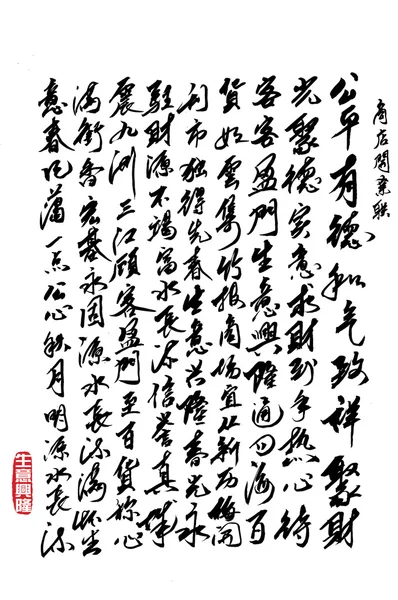 商店開業聯
公平有德和气致祥聚財
光聚德实意求財到手热心待
客客盈門生意興隆通四海百
貨如雲集竹报商場宜新历梅開
利市独得先春生意兴隆春光永
駐財源不竭富水長流信誉真誠
展九州三江顾客盈門至百貨称心
满街香宏基永固源水長流满怀生
意春风一点公心秋月明源水長流
生意興隆